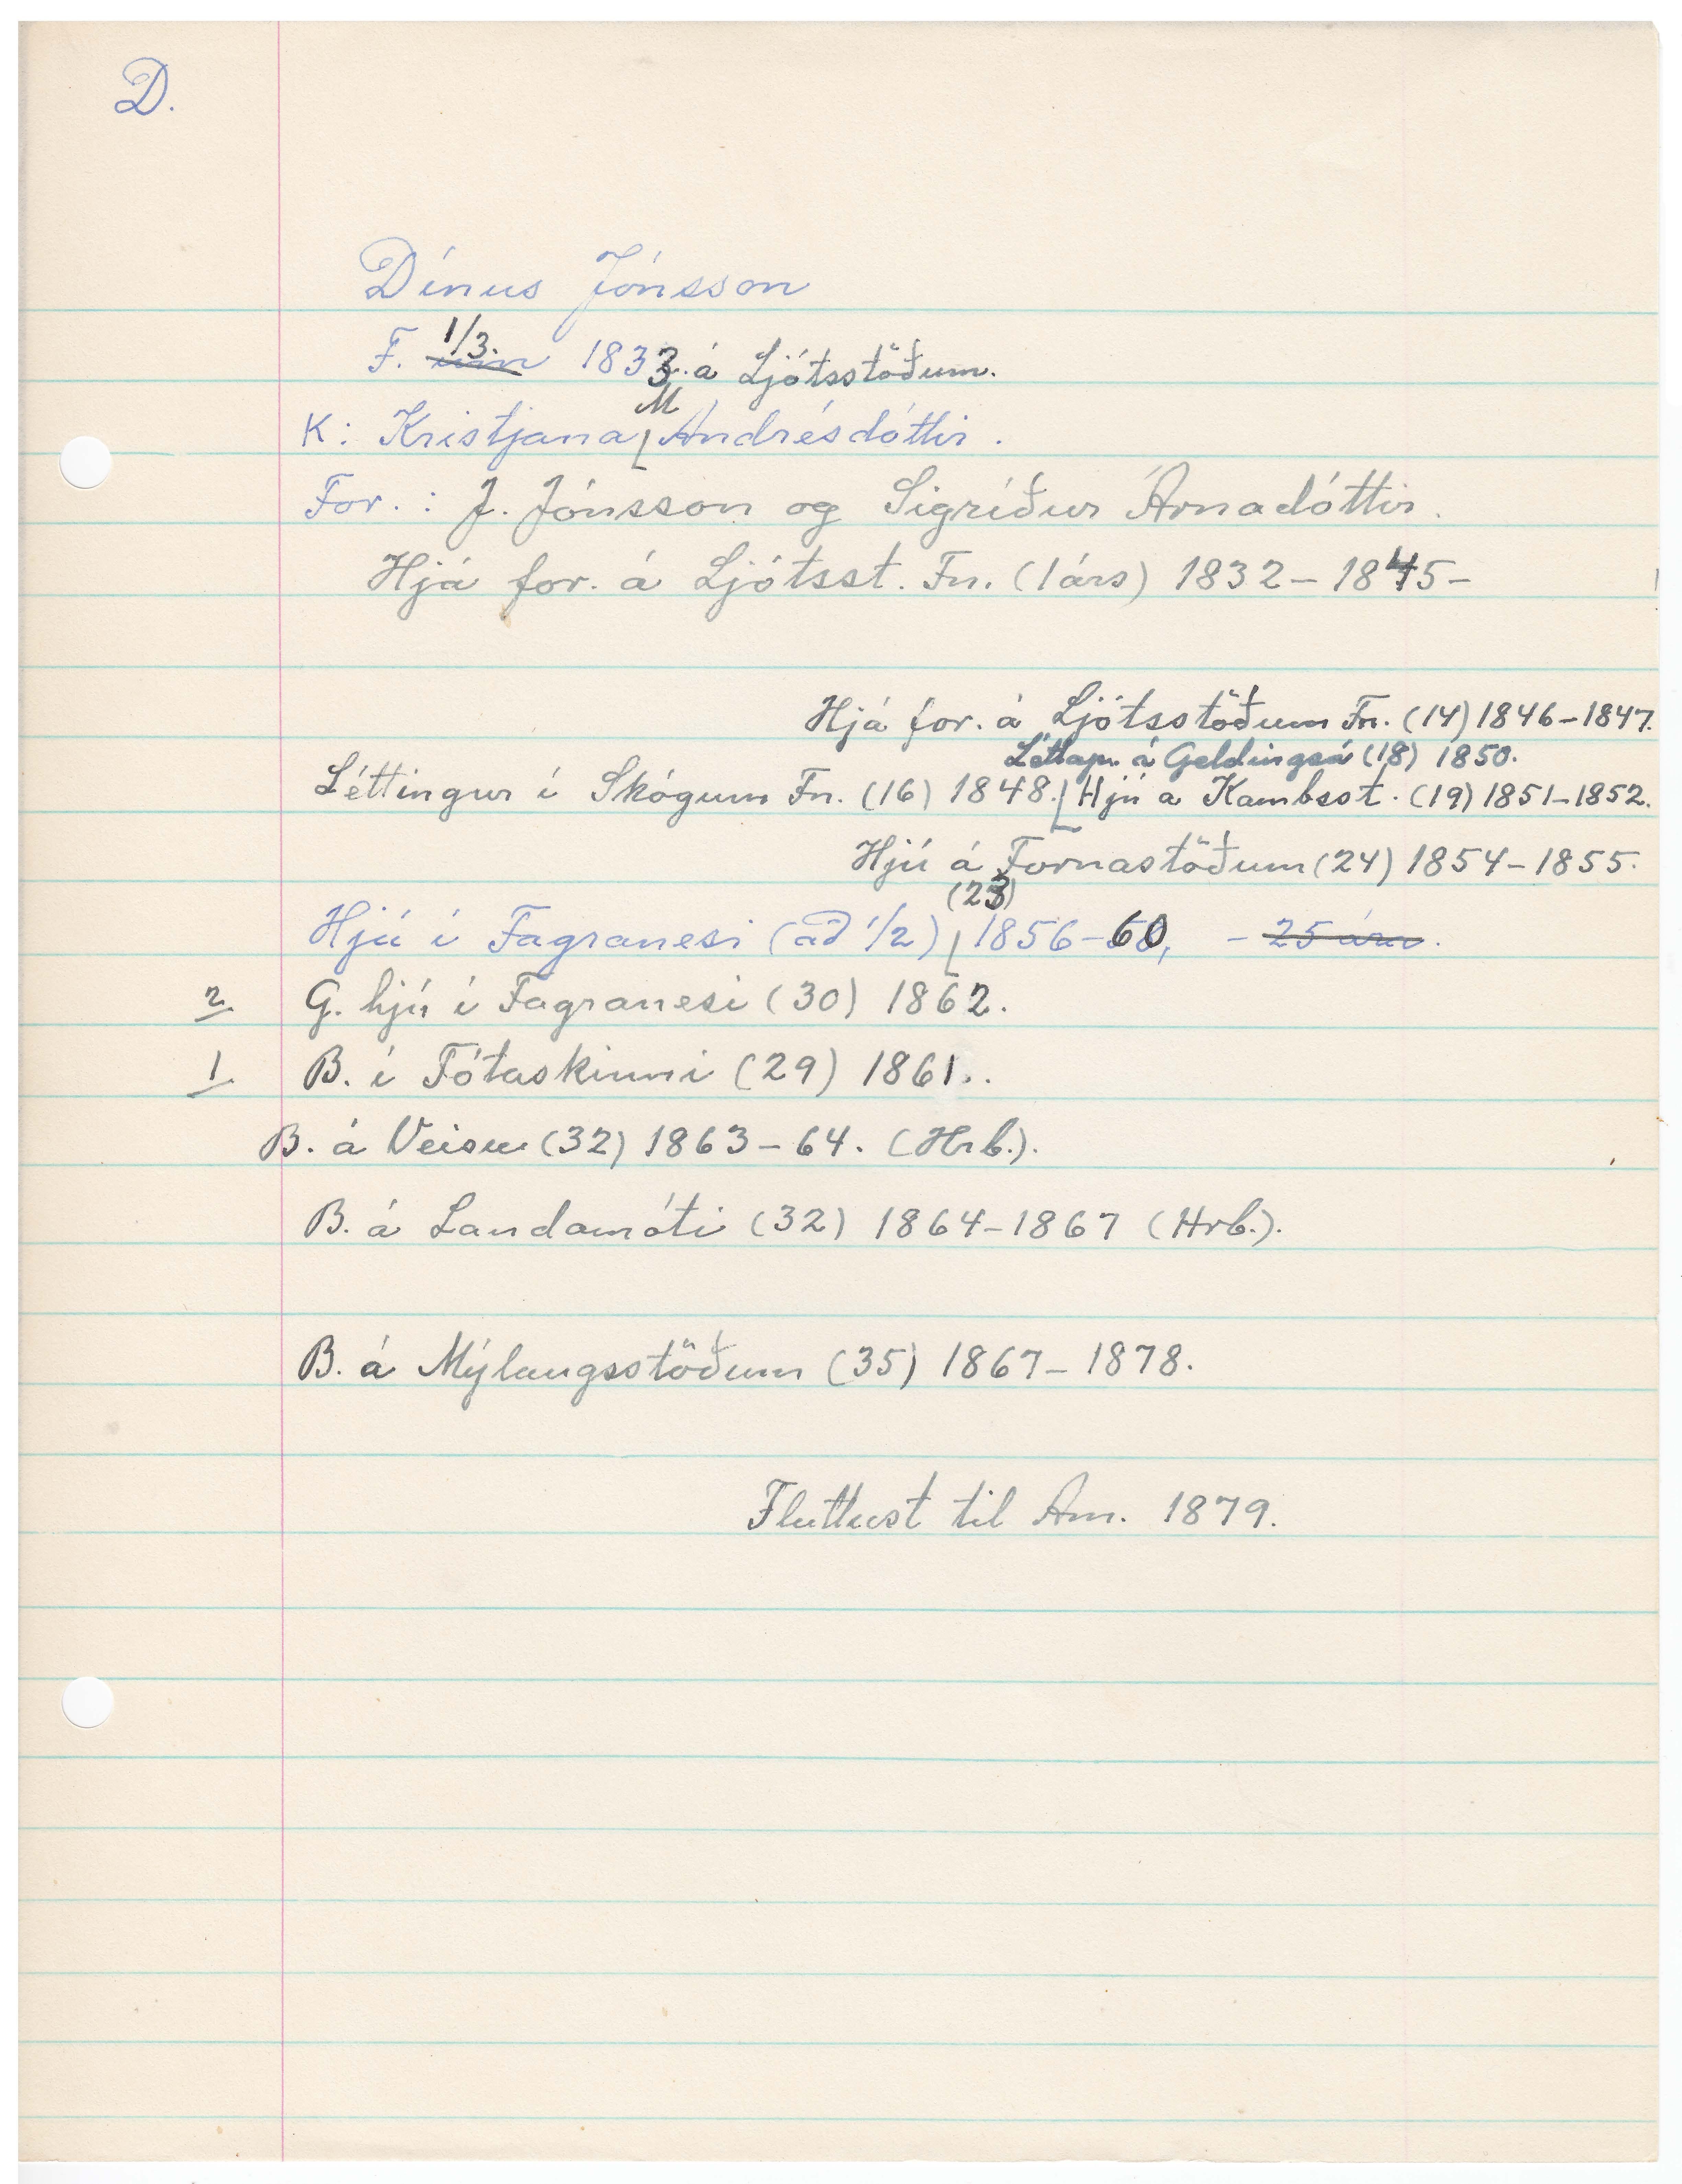 D.
Dínus Jónsson
F. 1/3. 1833. á Ljótsstöðum.
K: Kristjana M Andrésdóttir.
For.: J. Jónsson og Sigríður Árnadóttir.
Hjá for. á Ljótsst. Fn. (1árs) 1832-1845-
Hjá for. á Ljótsstöðum Fn. (14) 1846-1847.
Léttap. á Geldingsá (18) 1850.
Léttingur í Skógum Fn. (16) 1848. Hjú á Kambsst. (19) 1851-1852.
Hjú á Fornastöðum (24) 1854-1855.
(23)
Hjú í Fagranesi (að 1/2) 1856-60, - 25 ára.
2 G. hjú í Fagranesi (30) 1862.
1 B. í Fótaskinni (29) 1861..
B. á Veisu (32) 1863-64. (Hrb.).
B. á Landamóti (32) 1864-1867 (Hrb.).
B. á Mýlaugsstöðum (35) 1867-1878.
Fluttust til Am. 1879.